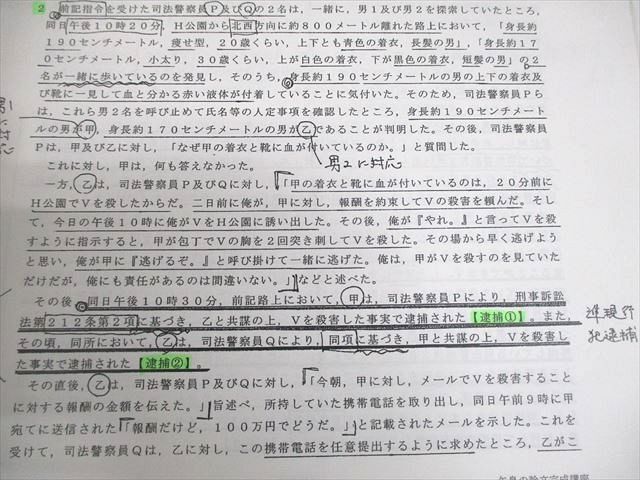 2 前記指令を受けた司法警察員P及びQの2名は，一緒に，男1及び男2を探索していたところ，
同日午後10時20分，H公園から北西方向に約800メートル離れた路上において，「身長約
190センチメートル，痩せ型，20歳くらい，上下とも青色の着衣，長髪の男」，「身長約17
0センチメートル，小太り，30歳くらい，上が白色の着衣，下が黒色の着衣，短髪の男」の2
名が一緒に歩いているのを発見し，そのうち，身長約190センチメートルの男の上下の着衣及
び靴に一見して血と分かる赤い液体が付着していることに気付いた。そのため，司法警察員Pら
は，これら男2名を呼び止めて氏名等の人定事項を確認したところ，身長約190センチメート
ルの男が甲，身長約170センチメートルの男が乙であることが判明した。その後，司法警察員
Pは，甲及び乙に対し，「なぜ甲の着衣と靴に血が付いているのか。」と質問した。
男1に対応
男2に対応
これに対し，甲は，何も答えなかった。
一方，乙は，司法警察員P及びQに対し，「甲の着衣と靴に血が付いているのは，20分前に
H公園でVを殺したからだ。二日前に俺が，甲に対し，報酬を約束してVの殺害を頼んだ。そし
て，今日の午後10時に俺がVをH公園に誘い出した。その後，俺が『やれ。』と言ってVを殺
すように指示すると，甲が包丁でVの胸を2回突き刺してVを殺した。その場から早く逃げよう
と思い，俺が甲に『逃げるぞ。』と呼び掛けて一緒に逃げた。俺は，甲がVを殺すのを見ていた
だけだが，俺にも責任があるのは間違いない。」などと述べた。
その後，同日午後10時30分，前記路上において，甲は，司法警察員Pにより，刑事訴訟
法第212条第2項に基づき，乙と共謀の上，Vを殺害した事実で逮捕された【逮捕①】。また，
その頃，同所において，乙は，司法警察員Qにより，同項に基づき，甲と共謀の上，Vを殺害し
た事実で逮捕された【逮捕②】。
準現行
犯逮捕
その直後，乙は，司法警察員P及びQに対し，「今朝，甲に対し，メールでVを殺害すること
に対する報酬の金額を伝えた。」旨述べ，所持していた携帯電話を取り出し，同日午前9時に甲
宛てに送信された「報酬だけど，100万円でどうだ。」と記載されたメールを示した。これを
受けて，司法警察員Qは，乙に対し，この携帯電話を任意提出するように求めたところ，乙がこ
矢島の論文完成講座